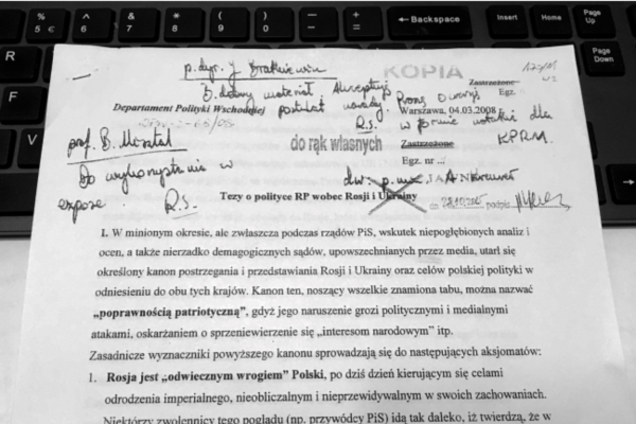 % 5 €
^ 6
& 7
* 8
( 9
) 0
_ -
+ =
←Backspace
Insert
Home
Page Up
Page Down
R
F
V
p. dyr. J. Bratkiewicz
KOPIA
B. dobry materiał. Akceptuję
Zastrzeżone
Egz.
Departament Polityki Wschodniej
postulat narady
Proszę o wersję
Warszawa, 04.03.2008
R.S.
w formie notatki dla
KPRM.
prof. B.
do rąk własnych
Zastrzeżone
Egz. nr ...
Do wykorzystania w
expose
R.S.
dw:
Tezy o polityce RP wobec Rosji i Ukrainy
podpis
I. W minionym okresie, ale zwłaszcza podczas rządów PiS, wskutek niepogłębionych analiz i
ocen, a także nierzadko demagogicznych sądów, upowszechnianych przez media, utarł się
określony kanon postrzegania i przedstawiania Rosji i Ukrainy oraz celów polskiej polityki w
odniesieniu do obu tych krajów. Kanon ten, noszący wszelkie znamiona tabu, można nazwać
„poprawnością patriotyczną”, gdyż jego naruszenie grozi politycznymi i medialnymi
atakami, oskarżaniem o sprzeniewierzenie się „interesom narodowym” itp.
Zasadnicze wyznaczniki powyższego kanonu sprowadzają się do następujących aksjomatów:
1. Rosja jest „odwiecznym wrogiem” Polski, po dziś dzień kierującym się celami
odrodzenia imperialnego, nieobliczalnym i nieprzewidywalnym w swoich zachowaniach.
Niektórzy zwolennicy tego poglądu (np. przywódcy PiS) idą tak daleko, iż twierdzą, że w